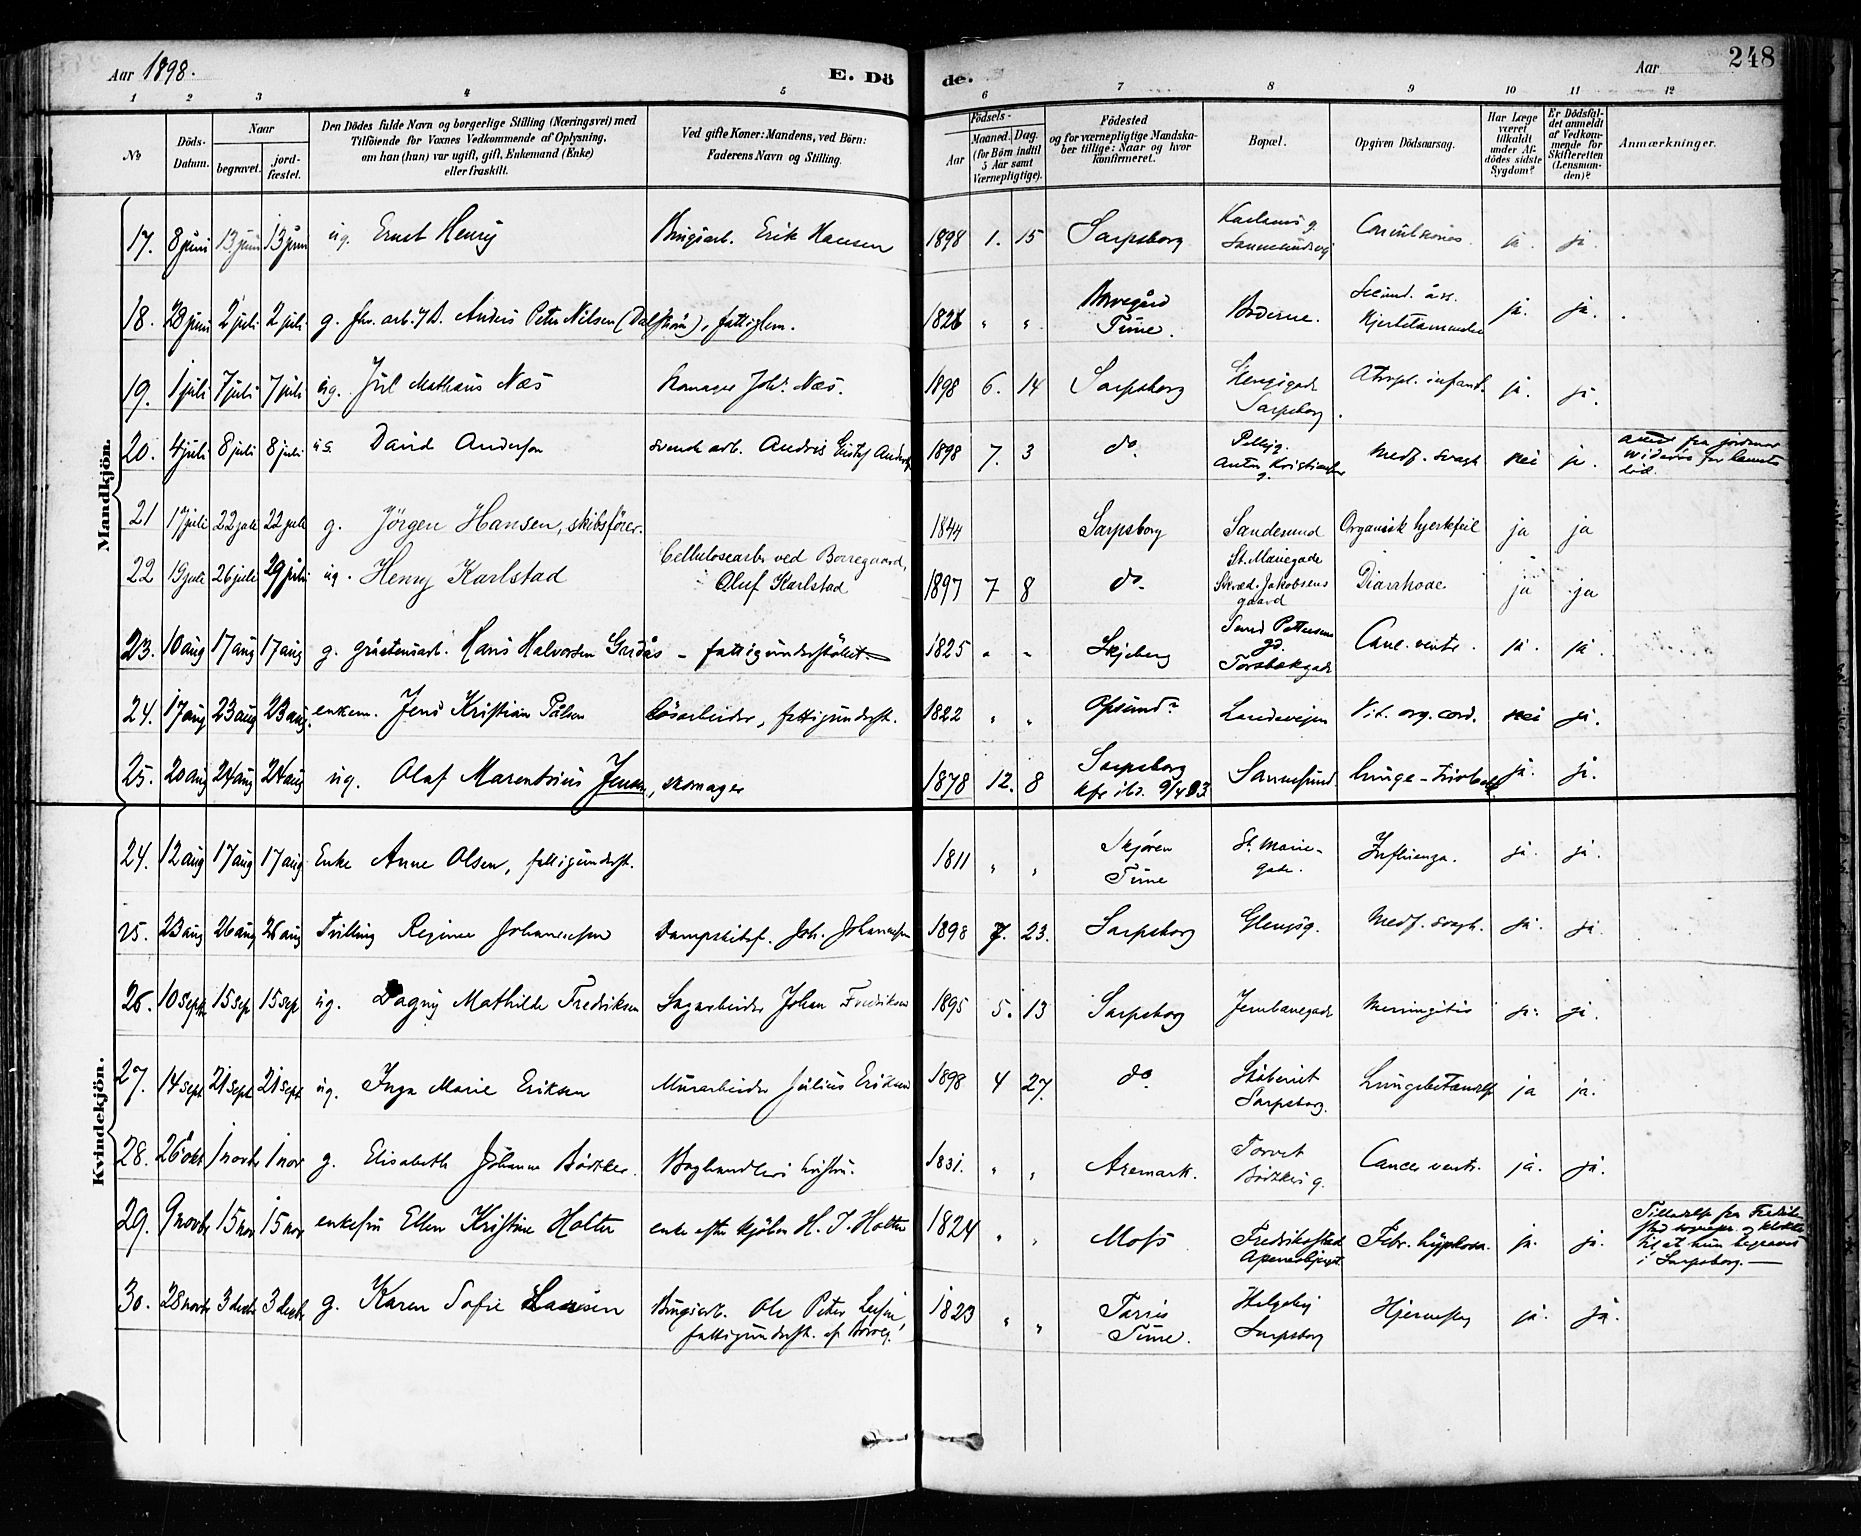 Aar 1898.
E. Dö
de.
Aar
248
1 2 3 4 5 6 7 8 9 10 11 12
No
Döds-Datum.
Naar
begravet.
jord-fæstet.
Den Dödes fulde Navn og borgerlige Stilling (Næringsvei) med
Tilföiende for Voxnes Vedkommende af Oplysning,
om han (hun) var ugift, gift, Enkemand (Enke)
eller fraskilt.
Ved gifte Koner: Mandens, ved Börn:
Faderens Navn og Stilling.
Födsels-
Aar
Maaned. Dag.
(for Börn indtil
5 Aar samt
Værnepligtige).
Födested
og for værnepligtige Mandska-
ber tillige: Naar og hvor
konfirmeret.
Bopæl.
Opgiven Dödsaarsag.
Har Læge
været
tilkaldt
under Af-
dödes sidste
Sygdom?
Er Dödsfal-
det anmeldt
af Vedkom-
mende for
Skifteretten
(Lensman-
den)?
Anmærkninger.
Mandkjön.
17. 8 juni 13 juni 13 juni ug. Ernst Henry Brugsarb. Erik Hansen 1898 1. 15 Sarpsborg ja. ja.
18. 28 juni 2 juli 2 juli g. fhv. arb. Anders Peter Nilsen (Dalström), fattiglem. 1826 " " Tune. ja. ja.
19. 1 juli 7 juli 7 juli ug. Juel Mathæus Næs Skomager Johs. Næs. 1898 6. 14 Sarpsborg Glengsgade Sarpsborg. Atroph. infant. ja. ja.
20. 4 juli 8 juli 8 juli David Andersen svensk arb. Andres Gustaf Anders 1898 7. 3 do. Anton Kristiansen g. Medf. svagh. nei ja.
21 17 juli 22 juli 22 juli g. Jörgen Hansen, skibsförer. 1844 Sarpsborg Sandesund Organisk hjertefeil ja ja
22 19 juli 26 juli 29 juli ug. Henry Karlstad Cellulosearb. ved Borregaard, Oluf Karlstad 1897 7 8 do. St. Mariegade Skræd. Jakobsens gaard Diarrhoae ja ja
23. 10 aug 17 aug 17 aug g. gråstensarb. Hans Halvorsen - fattigunderstöttet 1825 " " Skjeberg Torsbækgade Canc. ventr. ja. ja.
24. 17 aug 23 aug 23 aug. enkem. Jens Kristian Pålsen lösarbeider, fattigunderst. 1822 " " Opsund Landeveien Vit. org. cord. nei ja.
25. 20 aug 24 aug 24 aug ug. Olaf Marentius Jensen, skomager 1878 12. 8 Sarpsborg Sannesund. ja. ja.
Kvindekjön.
24. 12 aug 17 aug 17 aug Enke Anne Olsen, fattigunderst. 1811 " " Skjören Tune St. Marie-gade. Influenza. ja. ja.
25. 23 aug 26 aug 26 aug Tvilling Regine Johannessen Joh. Johannessen 1898 7. 23. Sarpsborg Glengsg. Medf. svagh. ja. ja.
26. 10 sept 15 sep 15 sep ug. Dagny Mathilde Fredriksen Sagarbeider Johan Fredriksen 1895 5. 13 Sarpsborg Jernbanegade Meningitis ja. ja.
27. 14 sept 21 sept 21 sept ug. Inga Marie Eriksen Murarbeider Julius Eriksen 1898 4 27. do. Sarpsborg. Lungebetændelse ja ja.
28. 26 okt. 1 novbr 1 nov g. Elisabeth Johanne Bödtker Boghandler 1831. " " Aremark. Torvet Bödtkers g. Cancer ventr. ja. ja.
29. 9 novbr 15 nov 15 nov enkefru Ellen Kristine Holter enke efter kjöbm. H. J. Holter 1824 " " Moss Fredrikstad Febr. ja. ja. Tilladelse fra Fredrikstad sognepr. og klokker til at hun begraves i Sarpsborg.
30. 28 novbr 3 decbr 3 decbr g. Karen Sofie Larsen Brugsarb. Ole Peter fattigunderst. af 1823 " " Tune. Helgeby Sarpsborg ja. ja.